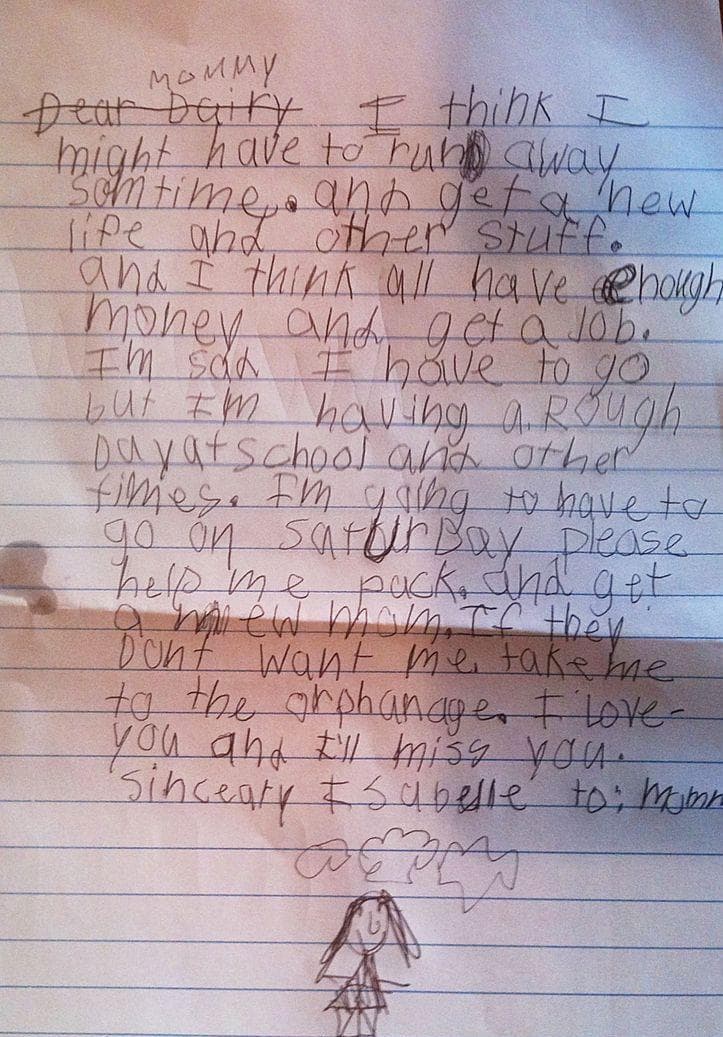 MOMMY
Dear Dairy I think I
might have to run away
somtime. and get a new
life and other stuff.
and I think all have enough
money and get a Job.
Im sad I have to go
but Im having a Rough
Day at school and other
times. I'm going to have to
go on SaturDay please
help me pack. and get
a new mom. If they
Dont want me. take me
to the orphanage. I love-
you and I'll miss you.
Sinceary Isabelle to: Momm